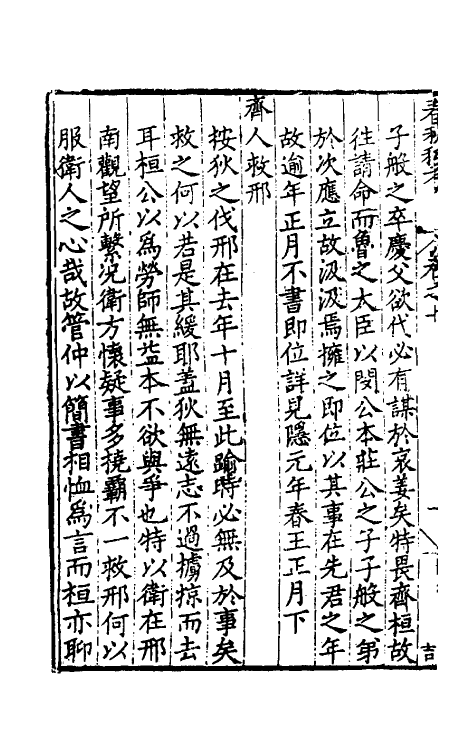 子般之卒慶父欲代必有謀於哀姜矣特畏齊桓故
往請命而魯之大臣以閔公本莊公之子子般之弟
於次應立故汲汲焉擁之即位以其事在先君之年
故逾年正月不書即位詳見隱元年春王正月下
齊人救邢
按狄之伐邢在去年十月至此踰時必無及於事矣
救之何以若是其緩耶蓋狄無遠志不過擄掠而去
耳桓公以為勞師無益本不欲與爭也特以衛在邢
南觀望所繫況衛方懷疑事多撓霸不一救邢何以
服衛人之心哉故管仲以簡書相恤為言而桓亦聊